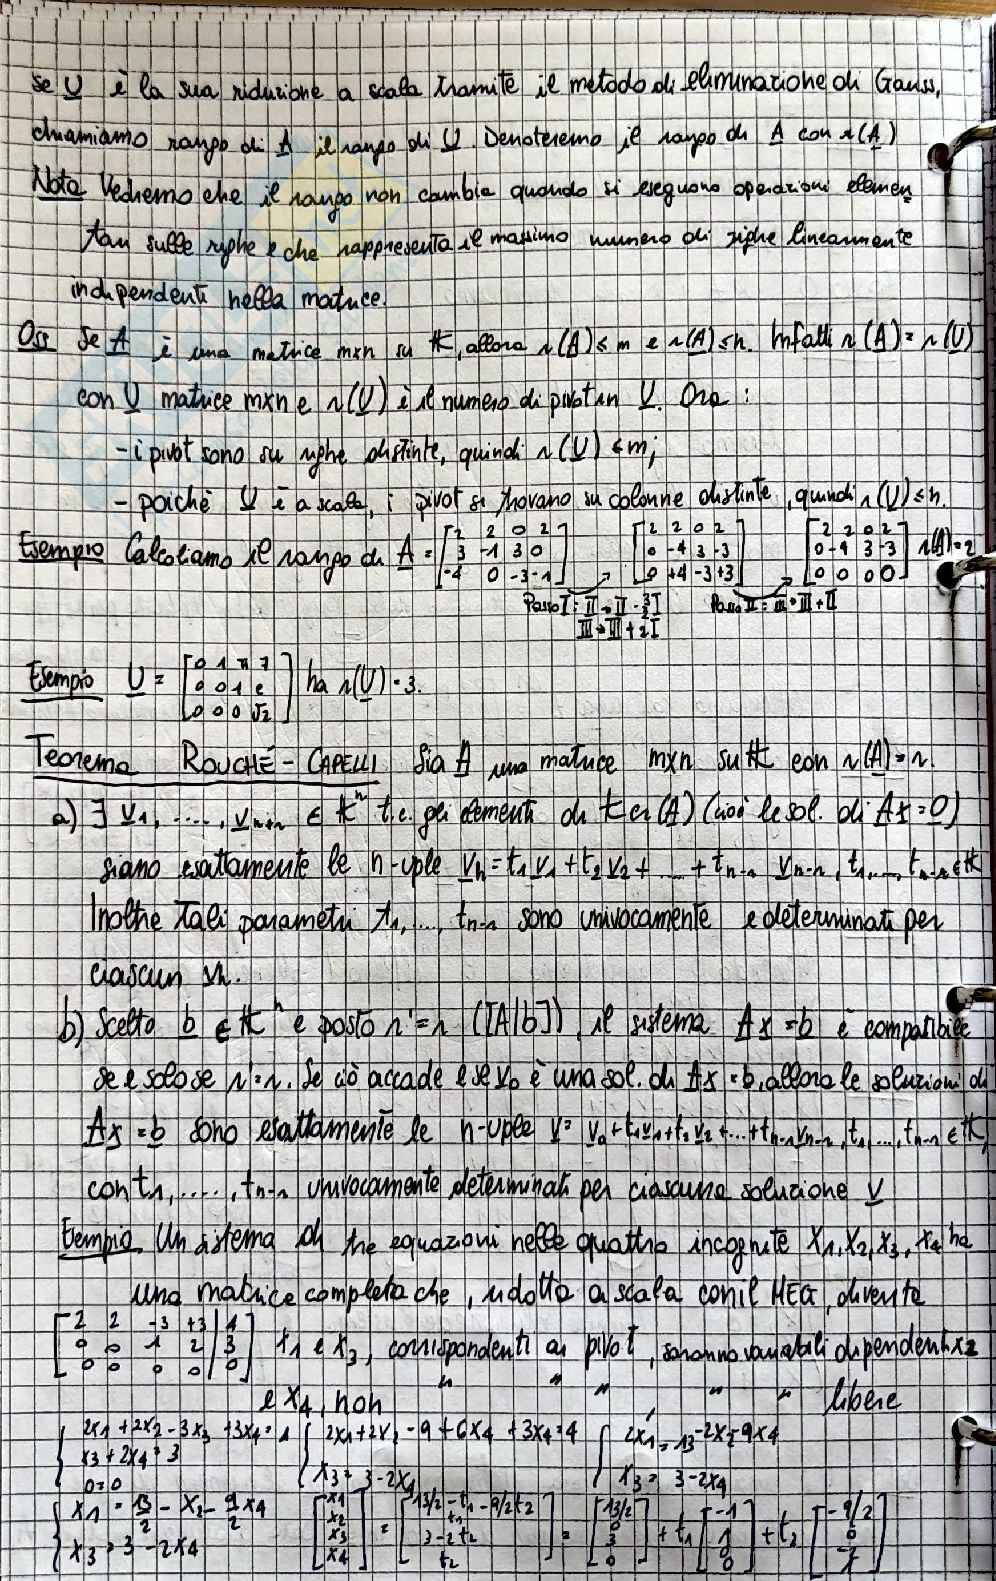 se U è la sua riduzione a scala tramite il metodo di eliminazione di Gauss,
chiamiamo rango di A il rango di U. Denoteremo il rango di A con r(A)
Nota Vedremo che il rango non cambia quando si eseguono operazioni elemen
tari sulle righe e che rappresenta il massimo numero di righe linearmente
indipendenti nella matrice.
Oss Se A è una matrice mxn su K, allora r(A) ≤ m e r(A) ≤ n. Infatti r(A) = r(U)
con U matrice mxn e r(U) è il numero di pivot in U. Ora:
- i pivot sono su righe distinte, quindi r(U) ≤ m;
- poichè U è a scala, i pivot si trovano su colonne distinte, quindi r(U) ≤ n.
Esempio Calcoliamo il rango di A = [2 2 0 2; 3 -1 3 0; -4 0 -3 -1] [2 2 0 2; 0 -4 3 -3; 0 +4 -3 +3] [2 2 0 2; 0 -4 3 -3; 0 0 0 0] r(A)=2
Passo I: II → II - 3/2 I Passo II: III → III + II
III → III + 2I
Esempio U = [0 1 π 7; 0 0 1 e; 0 0 0 √2] ha r(U) = 3.
Teorema ROUCHÉ - CAPELLI Sia A una matrice mxn su K con r(A) = r.
a) ∃ v1, ...., vn-r ∈ K^n t.c. gli elementi di Ker(A) (cioè le sol. di Ax = 0)
siano esattamente le n-uple vh = t1v1 + t2v2 + ... + tn-r vn-r, t1, ..., tn-r ∈ K
Inoltre tali parametri t1, ..., tn-r sono univocamente e determinati per
ciascun vh.
b) Scelto b ∈ K^n e posto r' = r([A|b]), il sistema Ax = b è compatibile
se e solo se r' = r. Se ciò accade e se v0 è una sol. di Ax = b, allora le soluzioni di
Ax = b sono esattamente le n-uple v = v0 + t1v1 + t2v2 + ... + tn-r vn-r, t1, ..., tn-r ∈ K,
con t1, ....., tn-r univocamente determinati per ciascuna soluzione v
Esempio Un sistema di tre equazioni nelle quattro incognite x1, x2, x3, x4 ha
una matrice completa che, ridotta a scala con il MEG, diventa
[2 2 -3 +3 | 4; 0 0 1 2 | 3; 0 0 0 0 | 0] x1 e x3, corrispondenti ai pivot, saranno variabili dipendenti x2
e x4, non " " " " " libere
{2x1 + 2x2 - 3x3 + 3x4 = 4 {2x1 + 2x2 - 9 + 6x4 + 3x4 = 4 {2x1 = 13 - 2x2 - 9x4
x3 + 2x4 = 3 x3 = 3 - 2x4 x3 = 3 - 2x4
0 = 0
{x1 = 13/2 - x2 - 9/2 x4 [x1; x2; x3; x4] = [13/2 - t1 - 9/2 t2; t1; 3 - 2t2; t2] = [13/2; 0; 3; 0] + t1 [-1; 1; 0; 0] + t2 [-9/2; 0;
x3 = 3 - 2x4